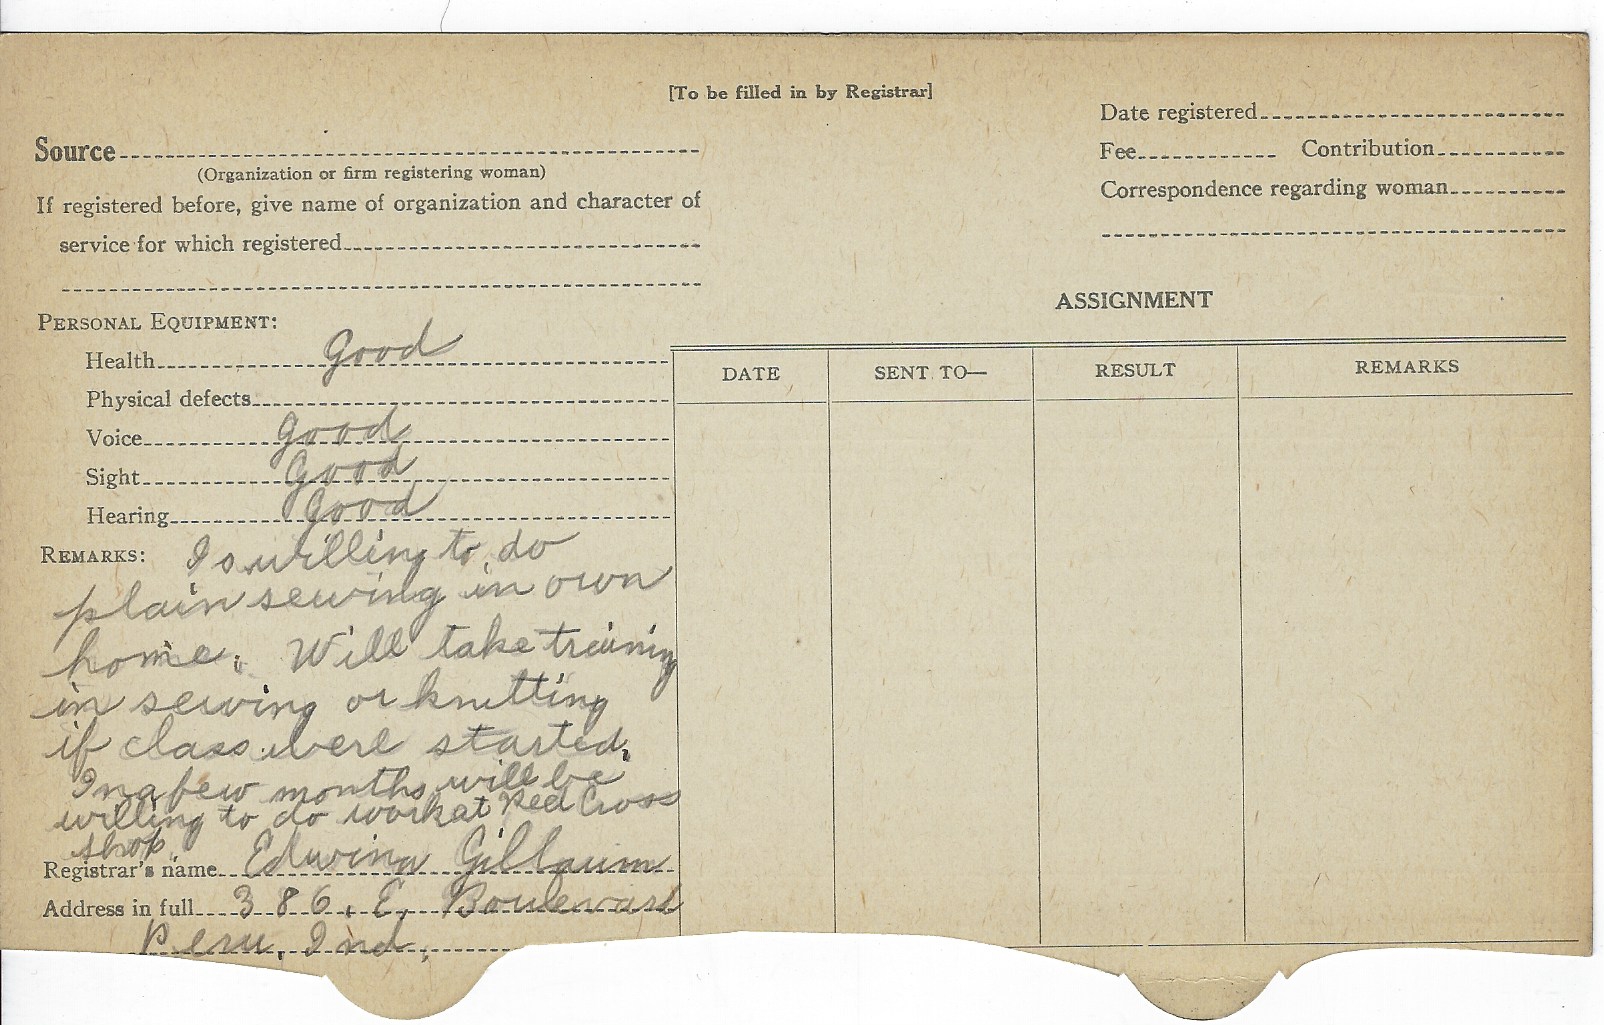 [To be filled in by Registrar]
Source
(Organization or firm registering woman)
If registered before, give name of organization and character of
service for which registered
Date registered
Fee Contribution
Correspondence regarding woman
PERSONAL EQUIPMENT:
Health Good
Physical defects
Voice Good
Sight Good
Hearing Good
REMARKS: Is willing to do
plain sewing in own
home. Will take training
in sewing or knitting
if class were started.
In a few months will be
willing to do work at Red Cross
shop.
Registrar's name Edwina Gillaum
Address in full 386. E. Boulevard
Peru, Ind.
ASSIGNMENT
DATE SENT TO— RESULT REMARKS